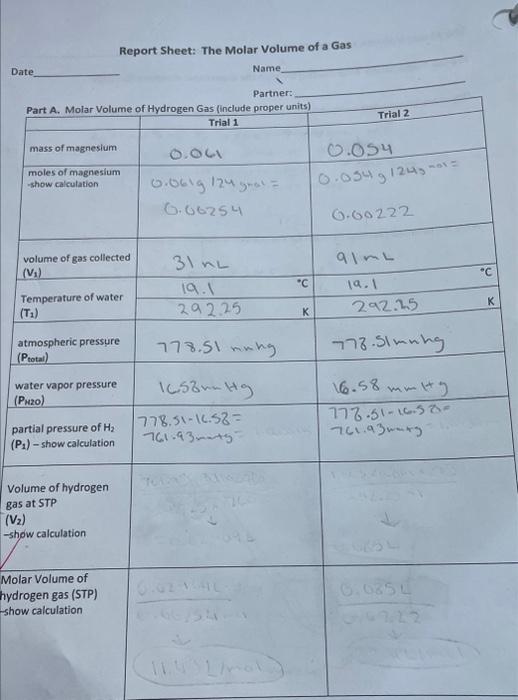 Report Sheet: The Molar Volume of a Gas
Date Name
Partner:
Part A. Molar Volume of Hydrogen Gas (include proper units)
Trial 1 Trial 2
mass of magnesium 0.061 0.054
moles of magnesium
-show calculation 0.061g /24 gmol = 0.054g /24g mol =
0.00254 0.00222
volume of gas collected
(V₁) 31 mL 91mL
Temperature of water
(T₁) 19.1 °C 19.1 °C
292.25 K 292.25 K
atmospheric pressure
(Ptotal) 778.51 mmhg 778.51mmhg
water vapor pressure
(PH2O) 16.58mmHg 16.58 mmHg
partial pressure of H₂
(P₁) – show calculation 778.51-16.58= 778.51-16.58=
761.93mmHg 761.93mmHg
Volume of hydrogen
gas at STP
(V₂)
–show calculation
Molar Volume of
hydrogen gas (STP)
-show calculation 0.085L